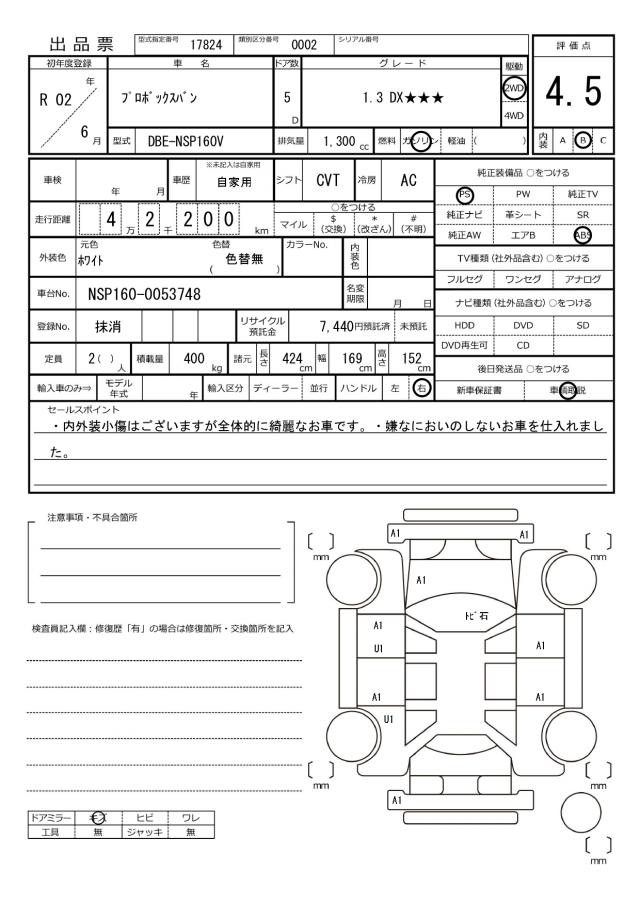 出品票 型式指定番号 17824 類別区分番号 0002 シリアル番号
評価点
4.5
内装 A B C
初年度登録 車名 ドア数 グレード 駆動
R 02 年 6 月
プロボックスバン 5 D 1.3 DX★★★ 2WD
4WD
型式 DBE-NSP160V 排気量 1,300 cc 燃料 ガソリン 軽油 ( )
車検 年 月 車歴 ※未記入は自家用 自家用 シフト CVT 冷房 AC
走行距離 4 万 2 千 2 0 0 km
○をつける
マイル $(交換) *(改ざん) #(不明)
外装色 元色 ホワイト 色替 ( 色替無 ) カラーNo. 内装色
車台No. NSP160-0053748 名変期限 月 日
登録No. 抹消 リサイクル預託金 7,440円預託済 未預託
定員 2( )人 積載量 400 kg 諸元 長さ 424 cm 幅 169 cm 高さ 152 cm
輸入車のみ⇒ モデル年式 年 輸入区分 ディーラー 並行 ハンドル 左 右
純正装備品 ○をつける
PS PW 純正TV
純正ナビ 革シート SR
純正AW エアB ABS
TV種類(社外品含む)○をつける
フルセグ ワンセグ アナログ
ナビ種類(社外品含む)○をつける
HDD DVD SD
DVD再生可 CD
後日発送品 ○をつける
新車保証書 車輌取説
セールスポイント
・内外装小傷はございますが全体的に綺麗なお車です。・嫌なにおいのしないお車を仕入れまし
た。
注意事項・不具合箇所
検査員記入欄：修復歴「有」の場合は修復箇所・交換箇所を記入
ドアミラー キズ ヒビ ワレ
工具 無 ジャッキ 無
A1 A1
〔 〕mm 〔 〕mm
A1
トビ石
A1
U1 A1
A1 A1
U1
〔 〕mm 〔 〕mm
A1
〔 〕mm